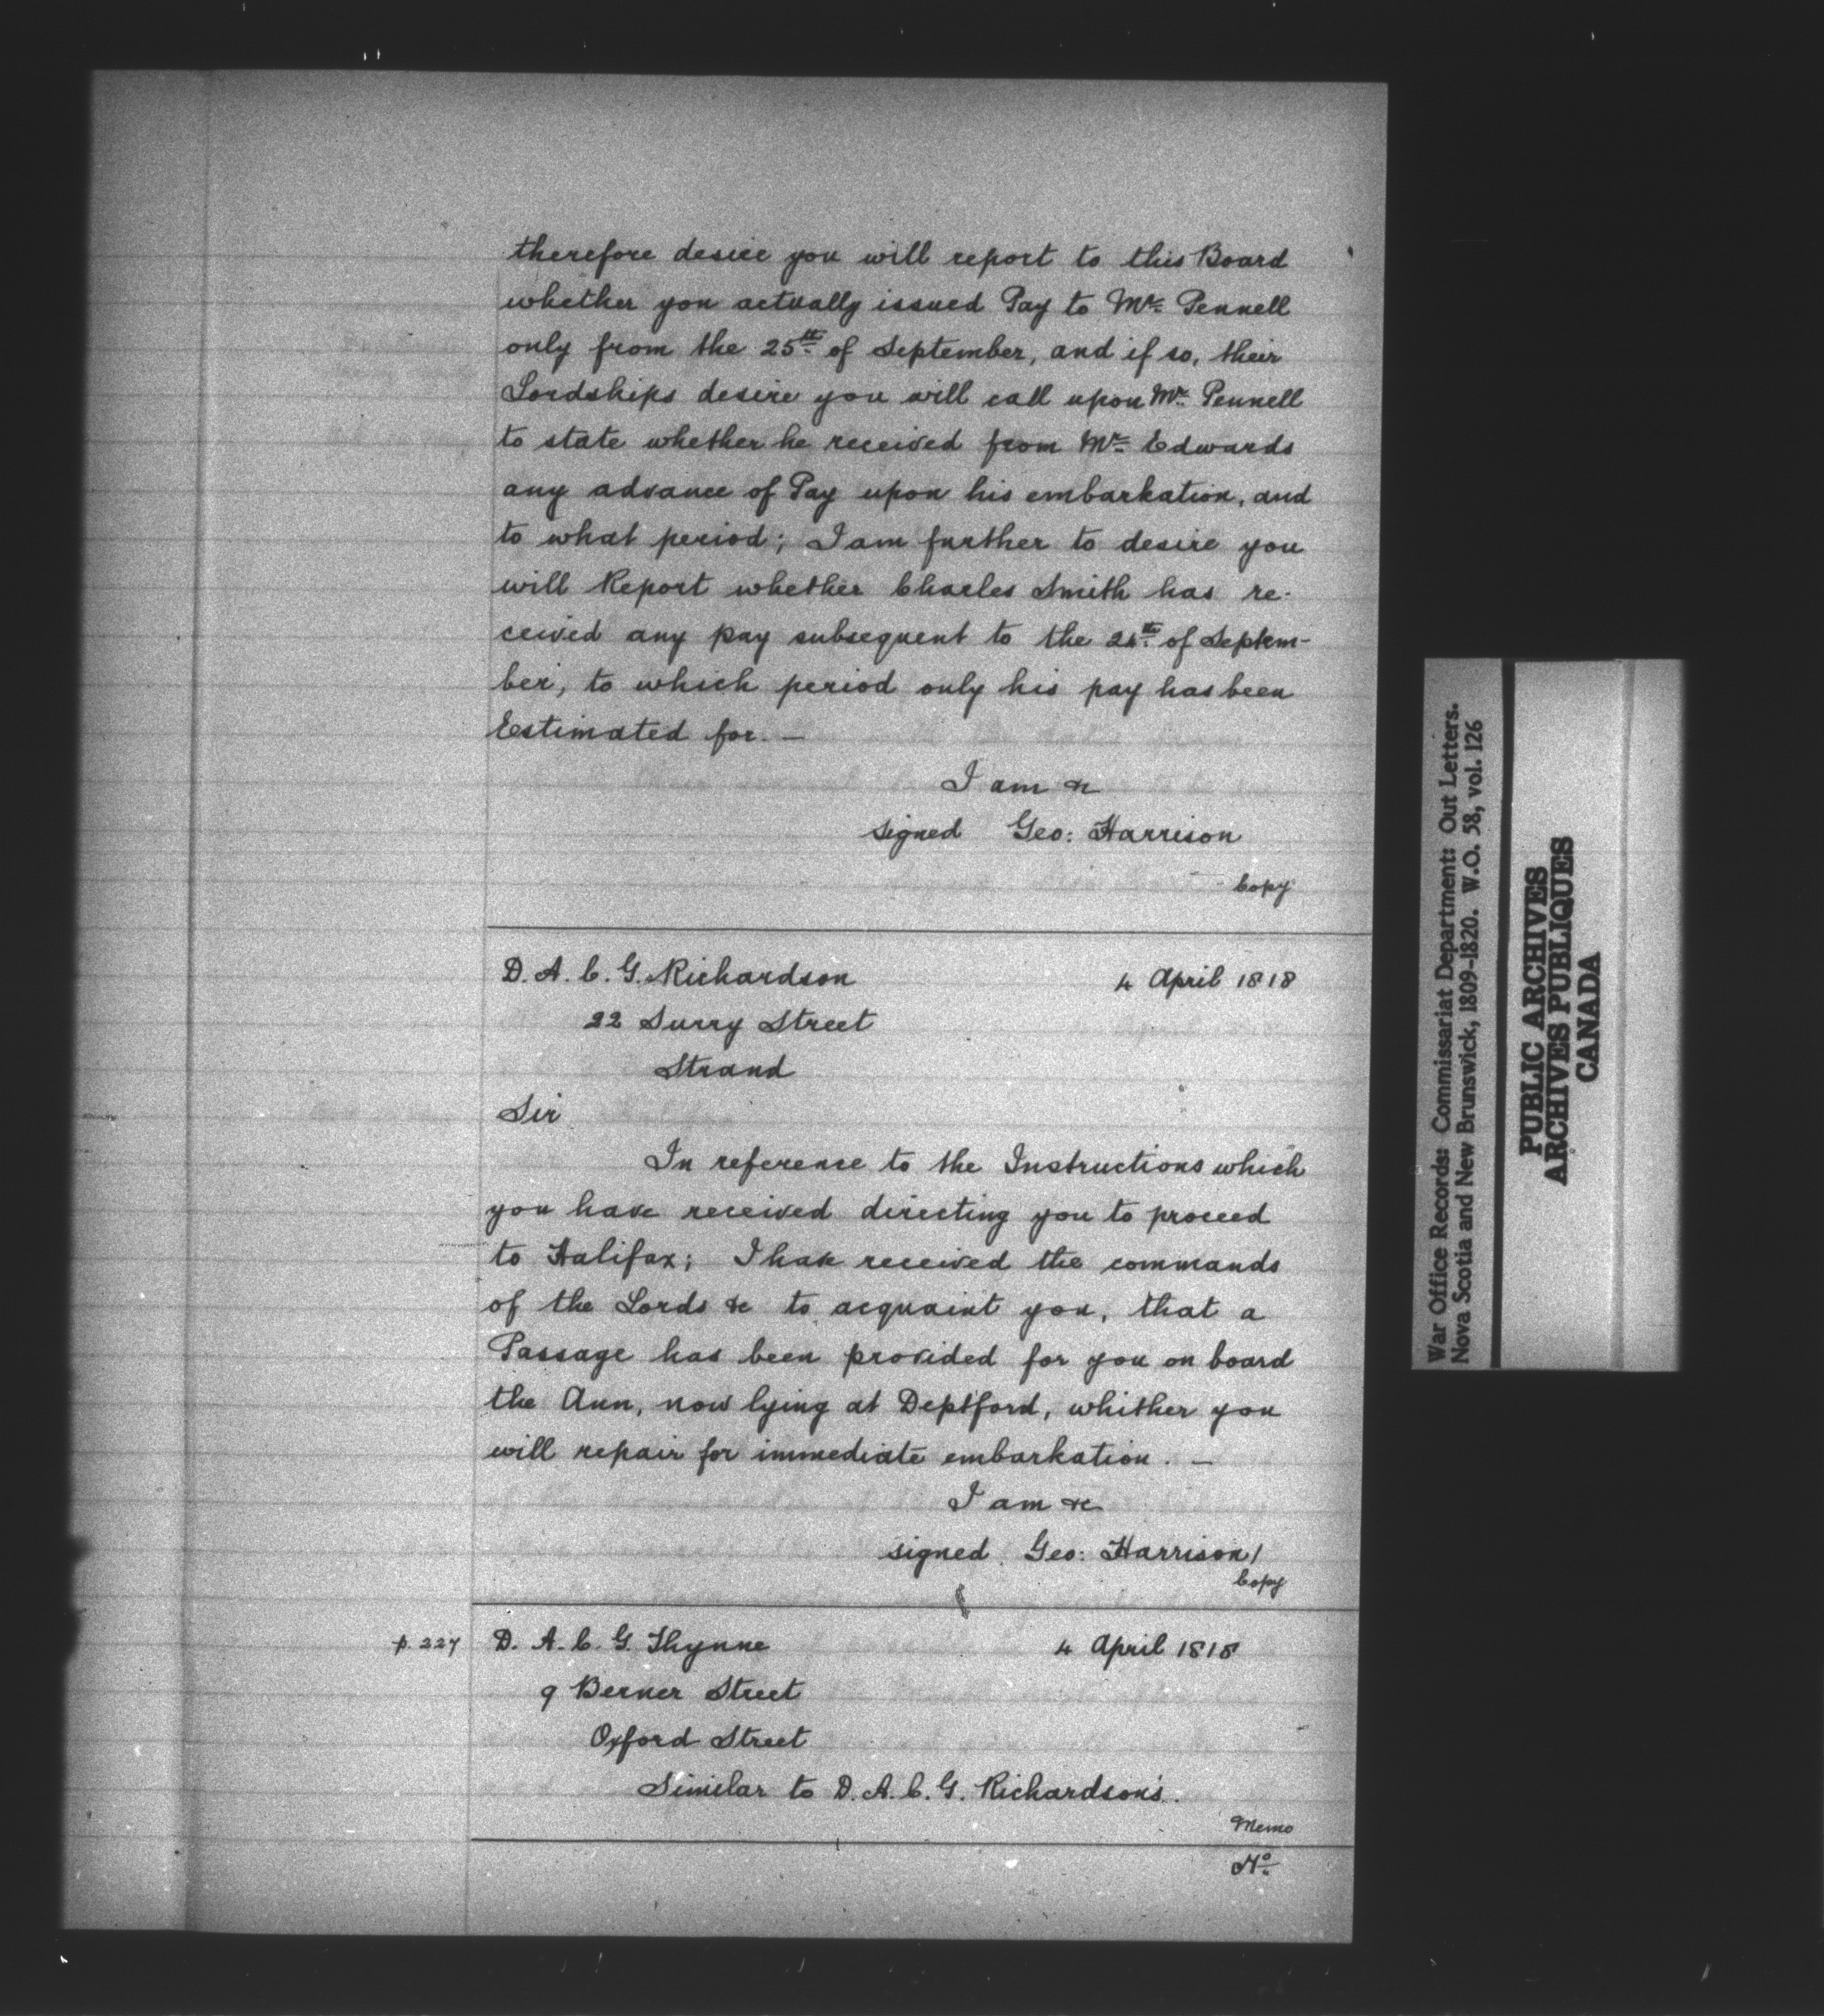 therefore desire you will report to this Board
whether you actually issued Pay to Mr. Pennell
only from the 25th. of September, and if so, their
Lordships desire you will call upon Mr. Pennell
to state whether he received from Mr. Edwards
any advance of Pay upon his embarkation, and
to what period; I am further to desire you
will Report whether Charles Smith has re-
ceived any pay subsequent to the 24th. of Septem-
ber, to which period only his pay has been
Estimated for. —
I am &c
signed Geo: Harrison
Copy
D. A. C. G. Richardson 4 April 1818
22 Surry Street
Strand
Sir
In reference to the Instructions which
you have received directing you to proceed
to Halifax; I have received the commands
of the Lords &c to acquaint you, that a
Passage has been provided for you on board
the Ann, now lying at Deptford, whither you
will repair for immediate embarkation. —
I am &c
signed Geo: Harrison/
Copy
p. 227 D. A. C. G. Thynne 4 April 1818
9 Berner Street
Oxford Street
Similar to D. A. C. G. Richardson's.
Memo
No.
War Office Records: Commissariat Department: Out Letters.
Nova Scotia and New Brunswick, 1809-1820. W.O. 58, vol. 126
PUBLIC ARCHIVES
ARCHIVES PUBLIQUES
CANADA